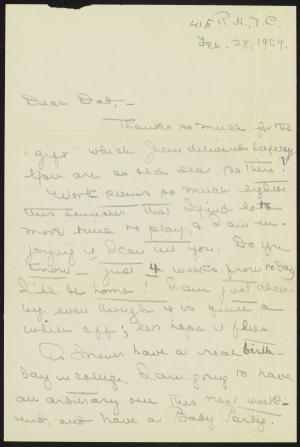 415 R.H., T.C.
Feb. 28, 1909.
Dear Dad,—
Thanks so much for the
"gift" which Jean delivered safely.
You are an old dear, so there!
Work seems so much lighter
this semester that I find lots
more time to play, & I am en-
joying it, I can tell you. Do you
know — just 4 weeks from today
I'll be home! I am just chee-
ing, even though 4 is quite a
while off; let's hope it flies.
As I never have a real birth-
day in college, I am going to have
an arbitrary one this next week-
end, and have a Baby Party.